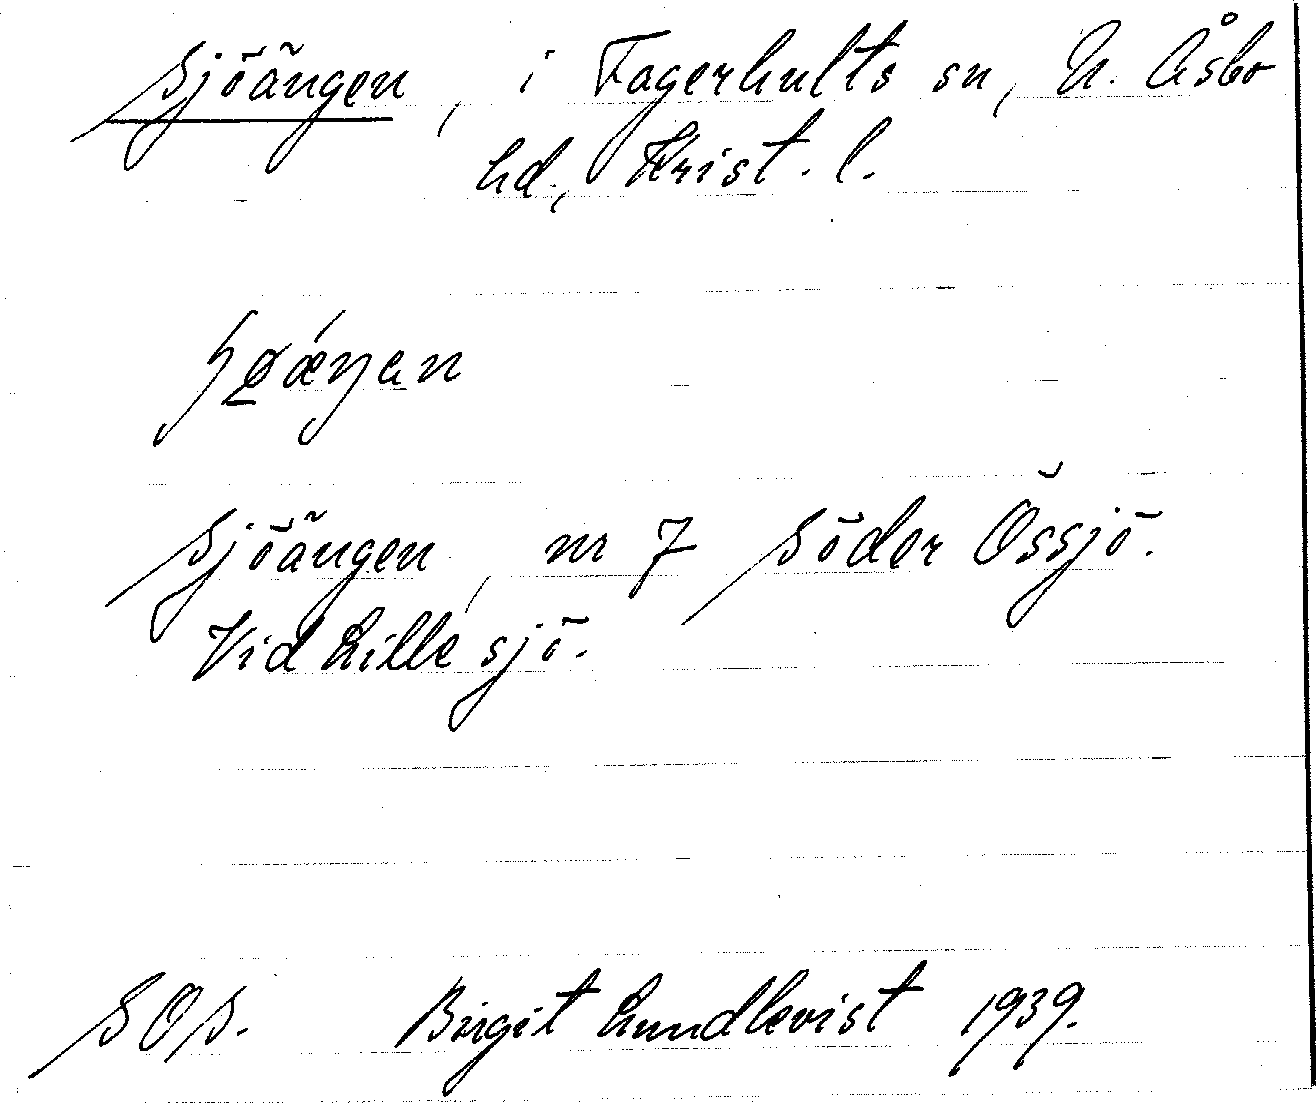 Sjöängen, i Fagerhults sn, N. Åsbo
hd., Krist. l.
Sjöängen, nr 7 Söder Össjö.
Vid Lille sjö.
SOS. Birgit Lundkvist 1939.